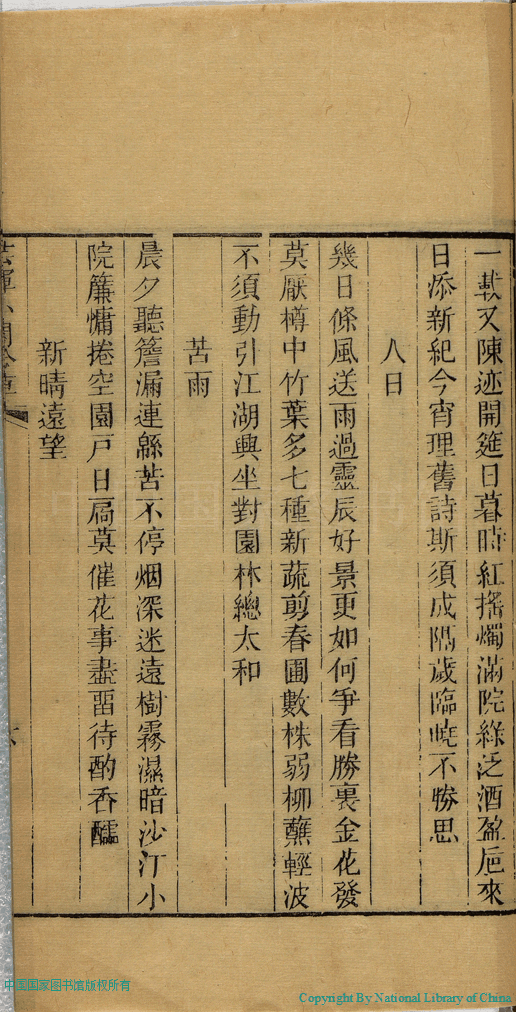 一載又陳迹開筵日暮時紅搖燭滿院綠泛酒盈巵來
日添新紀今宵理舊詩斯須成隔歲臨曉不勝思
八日
幾日條風送雨過靈辰好景更如何爭看勝裏金花發
莫厭樽中竹葉多七種新蔬剪春圃數株弱柳蘸輕波
不須動引江湖興坐對園林總太和
苦雨
晨夕聽簷漏連緜苦不停烟深迷遠樹霧濕暗沙汀小
院簾慵捲空園戸日扃莫催花事盡畱待酌香醽
新晴遠望
中国国家图书馆版权所有
Copyright By National Library of China